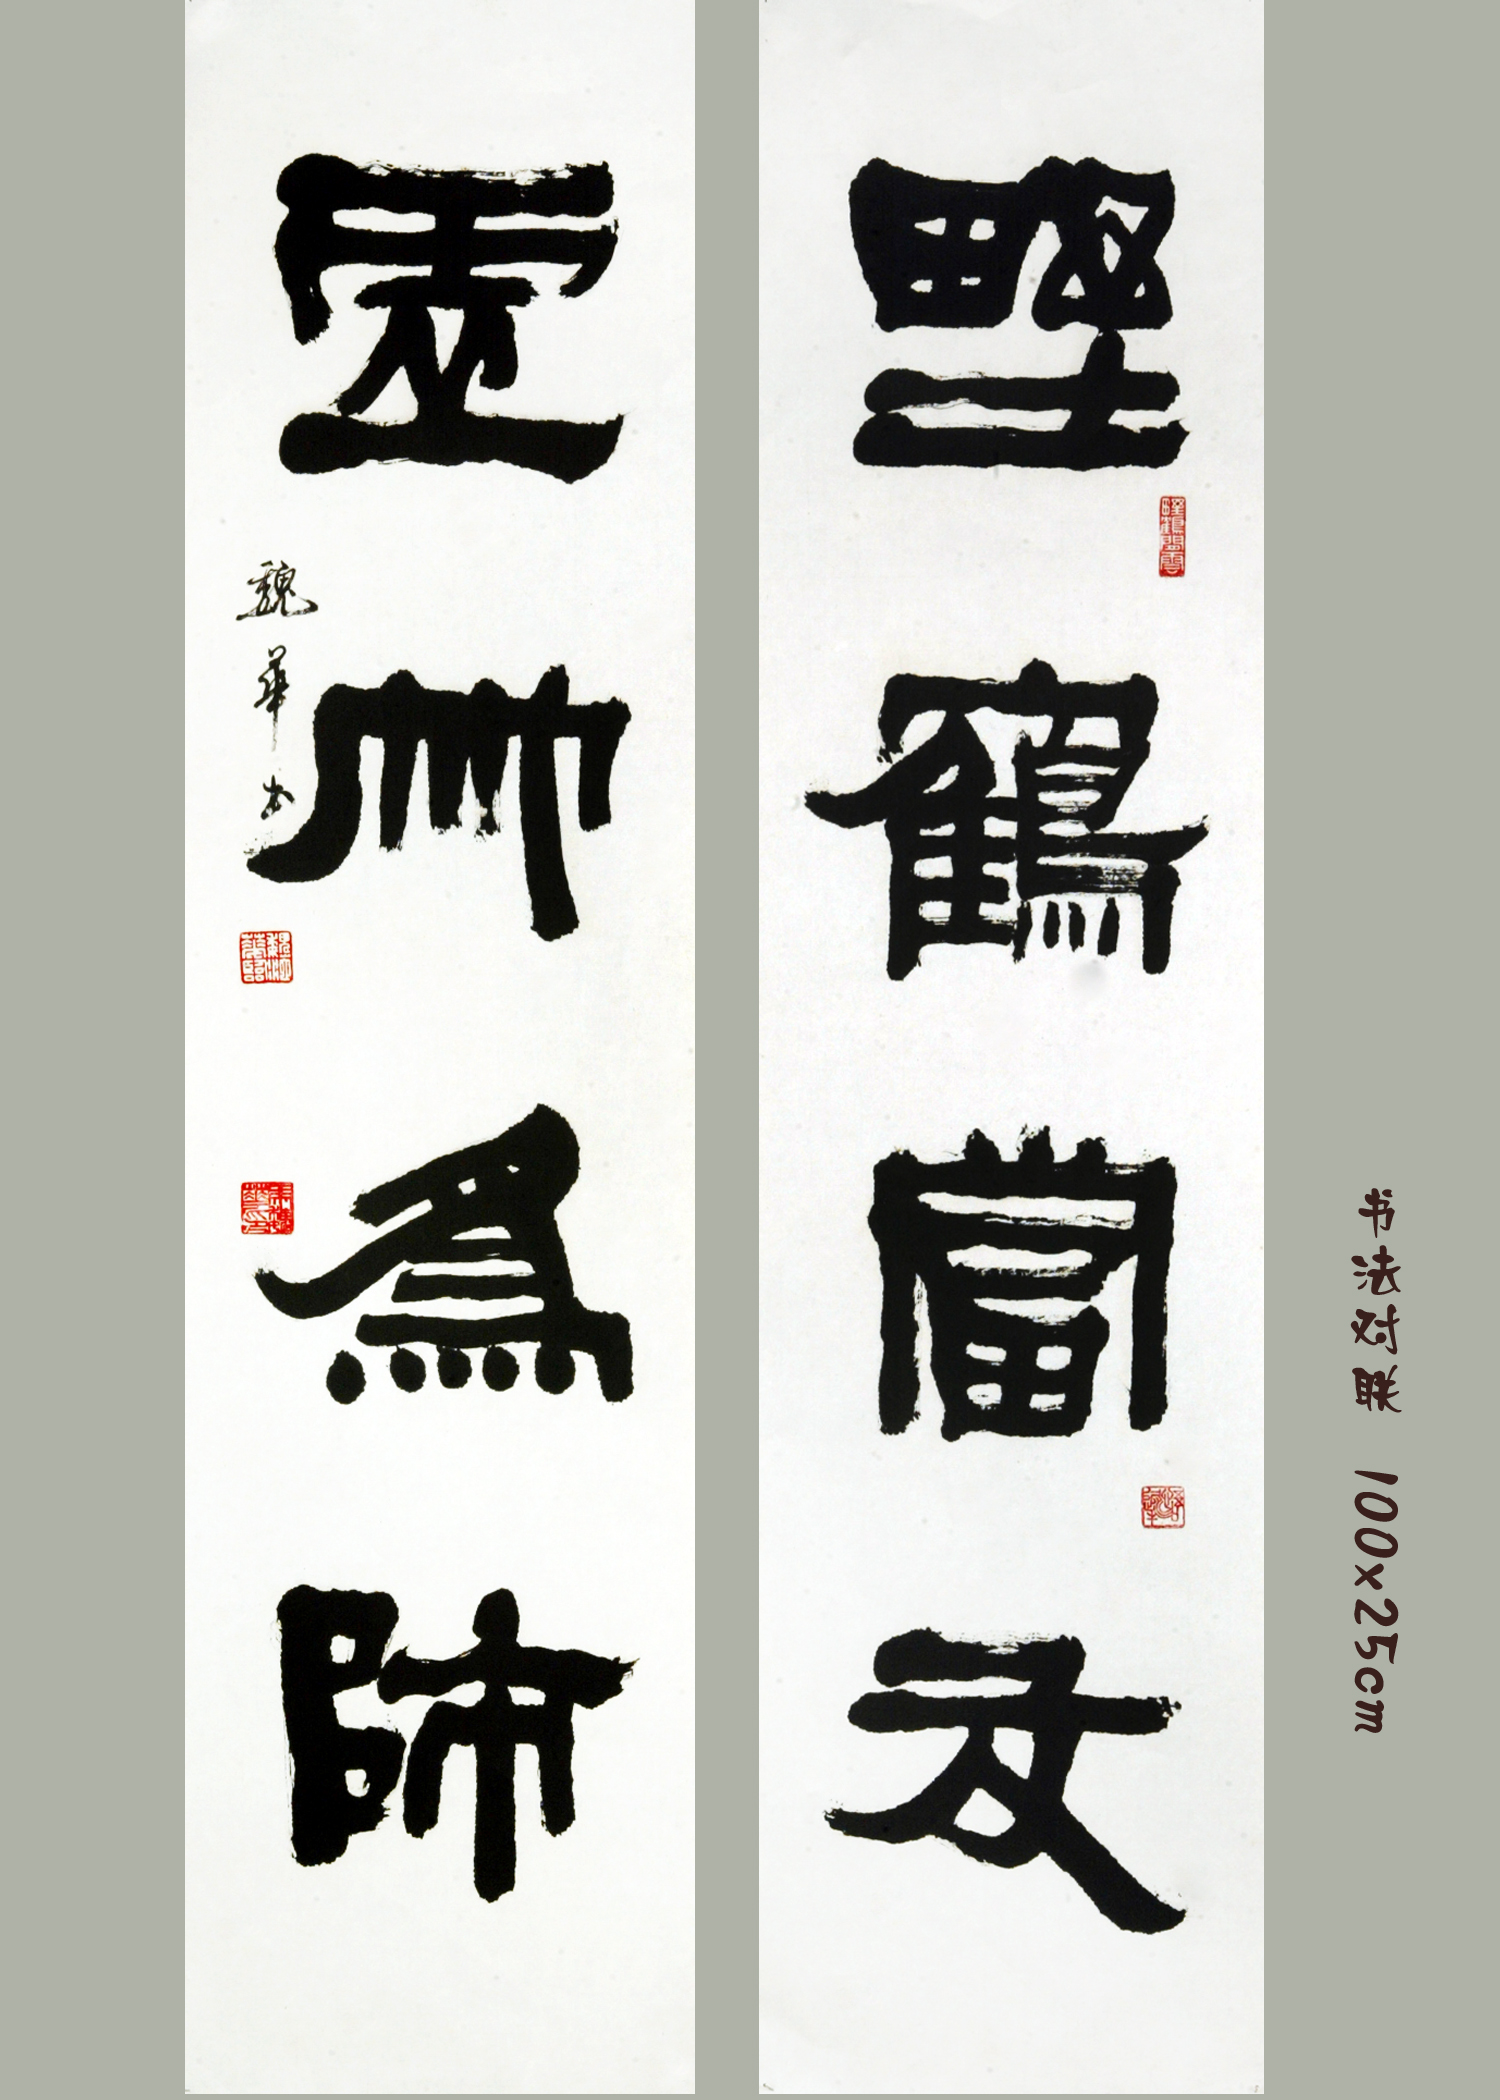 野鶴當友
虚竹為師
魏華書
书法对联 100x25cm